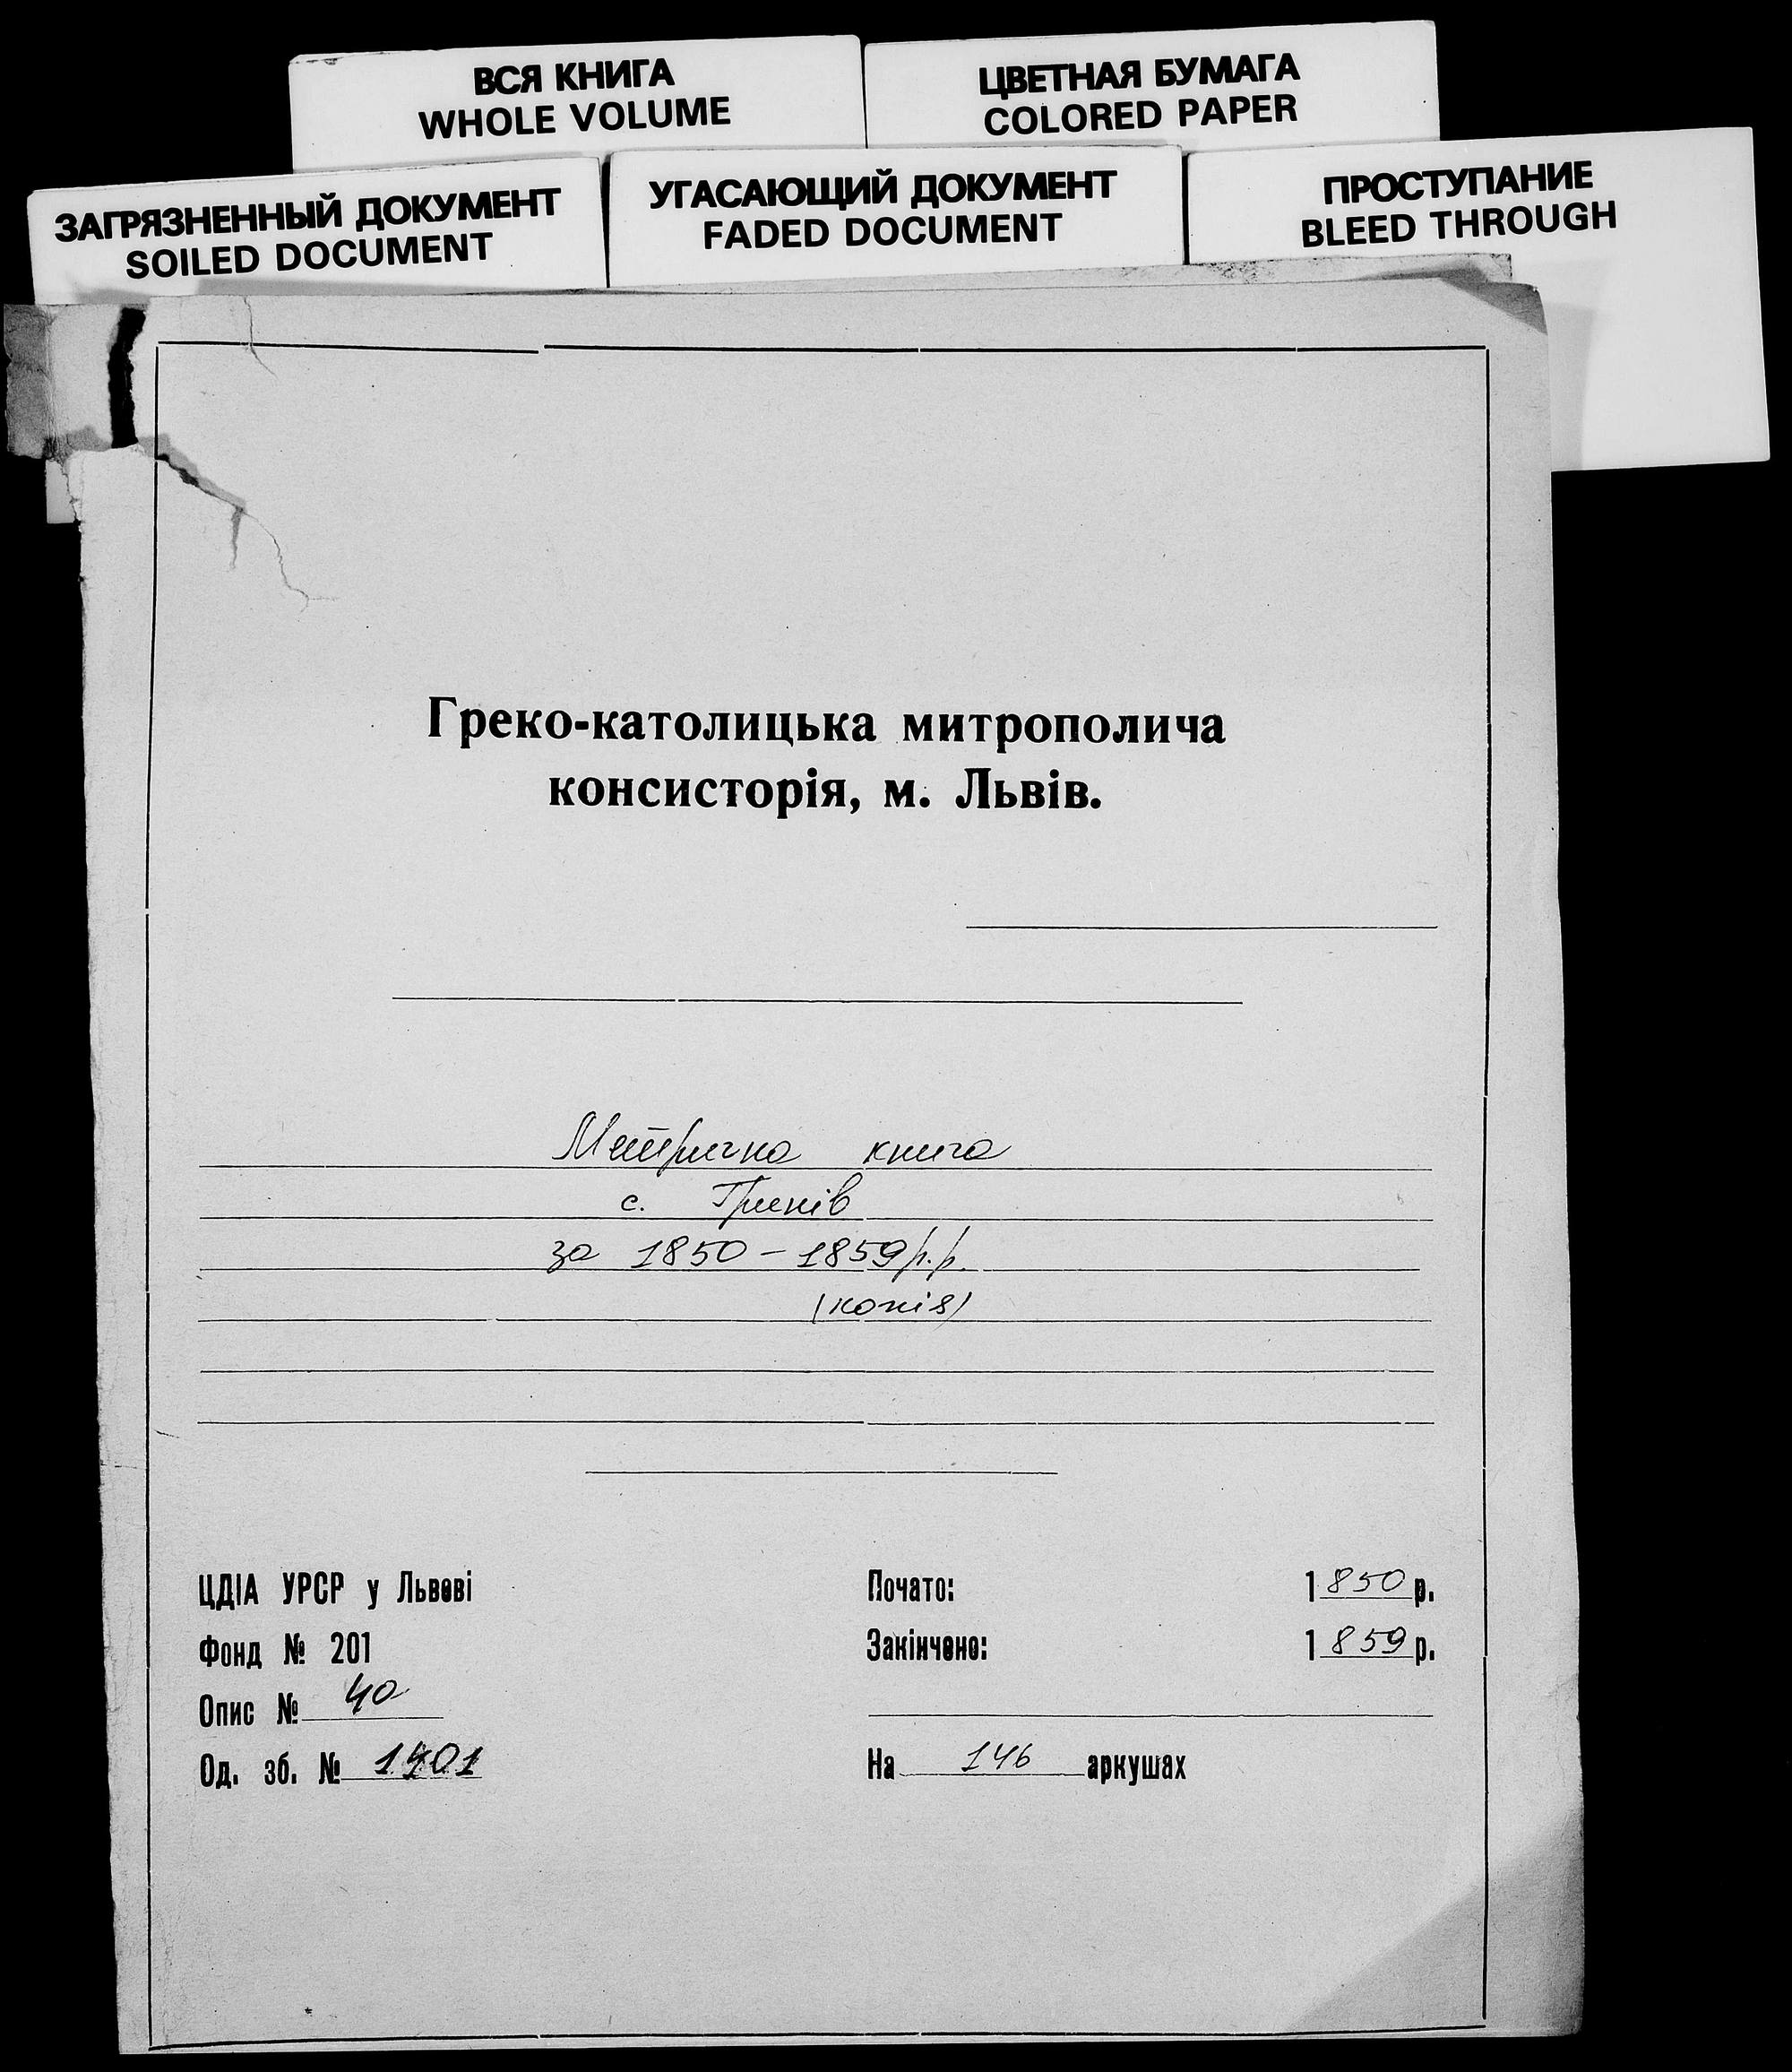 ВСЯ КНИГА
WHOLE VOLUME
ЦВЕТНАЯ БУМАГА
COLORED PAPER
ЗАГРЯЗНЕННЫЙ ДОКУМЕНТ
SOILED DOCUMENT
УГАСАЮЩИЙ ДОКУМЕНТ
FADED DOCUMENT
ПРОСТУПАНИЕ
BLEED THROUGH
Греко-католицька митрополича
консисторія, м. Львів.
Метрична книга
с. Гринів
за 1850 – 1859 р.р.
(копія)
ЦДІА УРСР у Львові
Фонд № 201
Опис № 40
Од. зб. №
Почато: 1850 р.
Закінчено: 1859 р.
На 146 аркушах